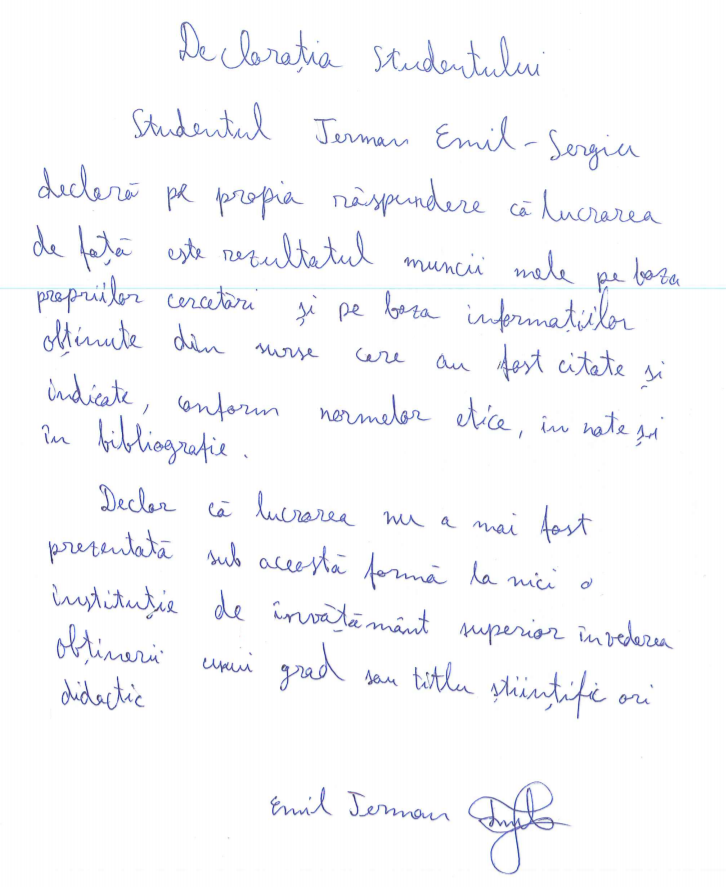 Declarația studentului
Studentul Jerman Emil-Sergiu
declară pe propia răspundere că lucrarea
de față este rezultatul muncii mele pe baza
propriilor cercetări și pe baza informațiilor
obținute din surse care au fost citate și
indicate, conform normelor etice, în note și
în bibliografie.
Declar că lucrarea nu a mai fost
prezentată sub această formă la nici o
instituție de învățământ superior în vederea
obținerii unui grad sau titlu științific ori
didactic
Emil Jerman